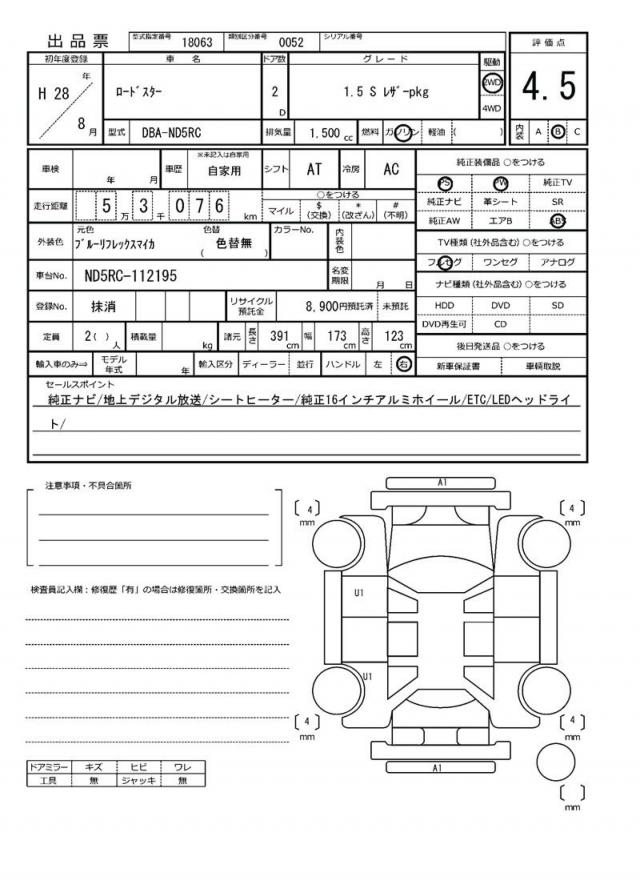 出品票 型式指定番号 18063 類別区分番号 0052 シリアル番号
初年度登録 車名 ドア数 グレード 駆動 評価点
H 28 年 8 月 ﾛｰﾄﾞｽﾀｰ 2 D 1.5 S ﾚｻﾞｰpkg 2WD 4WD 4.5
型式 DBA-ND5RC 排気量 1.500 cc 燃料 ガソリン 軽油 ( ) 内装 A B C
車検 年 月 車歴 ※未記入は自家用 自家用 シフト AT 冷房 AC
走行距離 5 万 3 千 0 7 6 km ○をつける
マイル $ (交換) * (改ざん) # (不明)
外装色 元色 ﾌﾞﾙｰﾘﾌﾚｯｸｽﾏｲｶ 色替 ( 色替無 ) カラーNo. 内装色
車台No. ND5RC-112195 名変期限 月 日
登録No. 抹消 リサイクル預託金 8,900円預託済 未預託
定員 2( ) 人 積載量 kg 諸元 長さ 391 cm 幅 173 cm 高さ 123 cm
輸入車のみ⇒ モデル年式 年 輸入区分 ディーラー 並行 ハンドル 左 右
純正装備品 ○をつける
PS PW 純正TV
純正ナビ 革シート SR
純正AW エアB ABS
TV種類 (社外品含む) ○をつける
フルセグ ワンセグ アナログ
ナビ種類 (社外品含む) ○をつける
HDD DVD SD
DVD再生可 CD
後日発送品 ○をつける
新車保証書 車輌取説
セールスポイント
純正ナビ/地上デジタル放送/シートヒーター/純正16インチアルミホイール/ETC/LEDヘッドライ
ト/
注意事項・不具合箇所
検査員記入欄：修復歴「有」の場合は修復箇所・交換箇所を記入
ドアミラー キズ ヒビ ワレ
工具 無 ジャッキ 無
A1
4 mm
4 mm
U1
U1
4 mm
4 mm
A1
mm